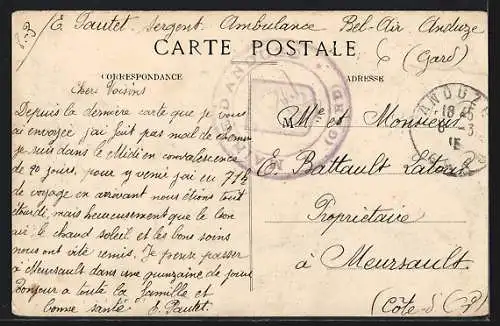 F.P.
E. Pautet, sergent, Ambulance Bel-Air Anduze
(Gard)
CARTE POSTALE
CORRESPONDANCE
ADRESSE
Chers Voisins
Depuis la dernière carte que je vous
ai envoyée j'ai fait pas mal de chemin
je suis dans le Midi en convalescence
de 20 jours, pour y venir j'ai eu 71 h
de voyage en arrivant nous étions tout
étourdis, mais heureusement que le bon
air le chaud soleil et les bons soins
nous ont vite remis. Je pense passer
à Meursault dans une quinzaine de jours
Bonjour a toute la famille et
bonne santé E. Pautet.
ANDUZE
18 45
3
15
Mme et Monsieur
E. Battault Latour
Propriétaire
à Meursault
(Côte-d'Or)